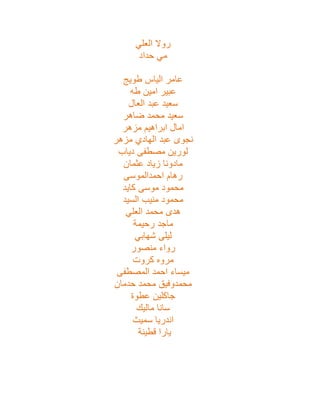 رولا العلي
مي حداد
عامر الياس طويج
عبير امين طه
سعيد عبد العال
سعيد محمد ضاهر
امال ابراهيم مزهر
نجوى عبد الهادي مزهر
لورين مصطفى دياب
مادونا زياد عثمان
رهام احمدالموسى
محمود موسى كايد
محمود منيب السيد
هدى محمد العلي
ماجد رحيمة
ليلى شهابي
رواء منصور
مروه كروت
ميساء احمد المصطفى
محمدوفيق محمد حدمان
جاكلين عطوة
سانا ماليك
اندريا سميث
يارا قطينة